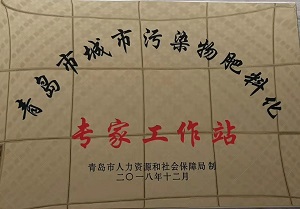 青岛市城市污染物肥料化
专家工作站
青岛市人力资源和社会保障局 制
二〇一八年十二月